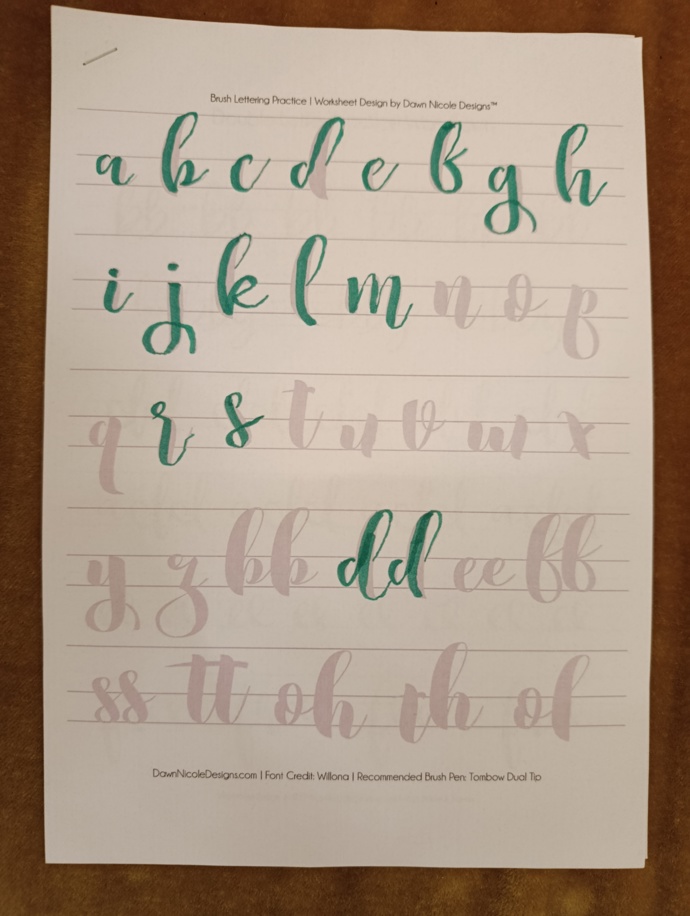 Brush Lettering Practice | Worksheet Design by Dawn Nicole Designs™
a b c d e f g h
i j k l m n o p
q r s t u v w x
y z bb dd ee ff
ss tt oh th of
DawnNicoleDesigns.com | Font Credit: Willona | Recommended Brush Pen: Tombow Dual Tip